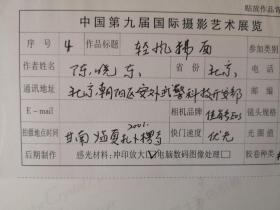 贴放作品背
中国第九届国际摄影艺术展览
序号 4 作品标题 轻帆拂面 参加类别
作者姓名 陈晓东 省份 北京 电话
通讯地址 北京朝阳区安外武警科技开发部 邮编
E-mail 相机品牌 佳能EOS 镜头规格
拍摄地点时间 甘南 2001. 快门速度 优先 光圈值
后期制作 感光材料:冲印放大 电脑数码图像处理 胶卷种类